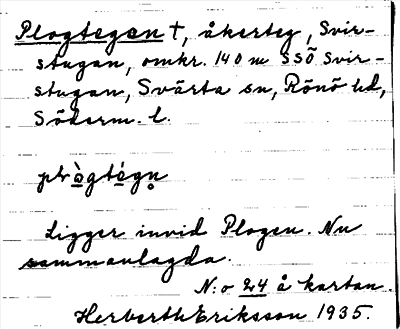 Plogtegen †, åkerteg, Svir-
stugan, omkr. 140 m SSÖ Svir-
stugan, Svärta sn, Rönö hd,
Söderm. l.
Ligger invid Plogen. Nu
sammanlagda.
N:o 24 å kartan.
Herberth Eriksson 1935.